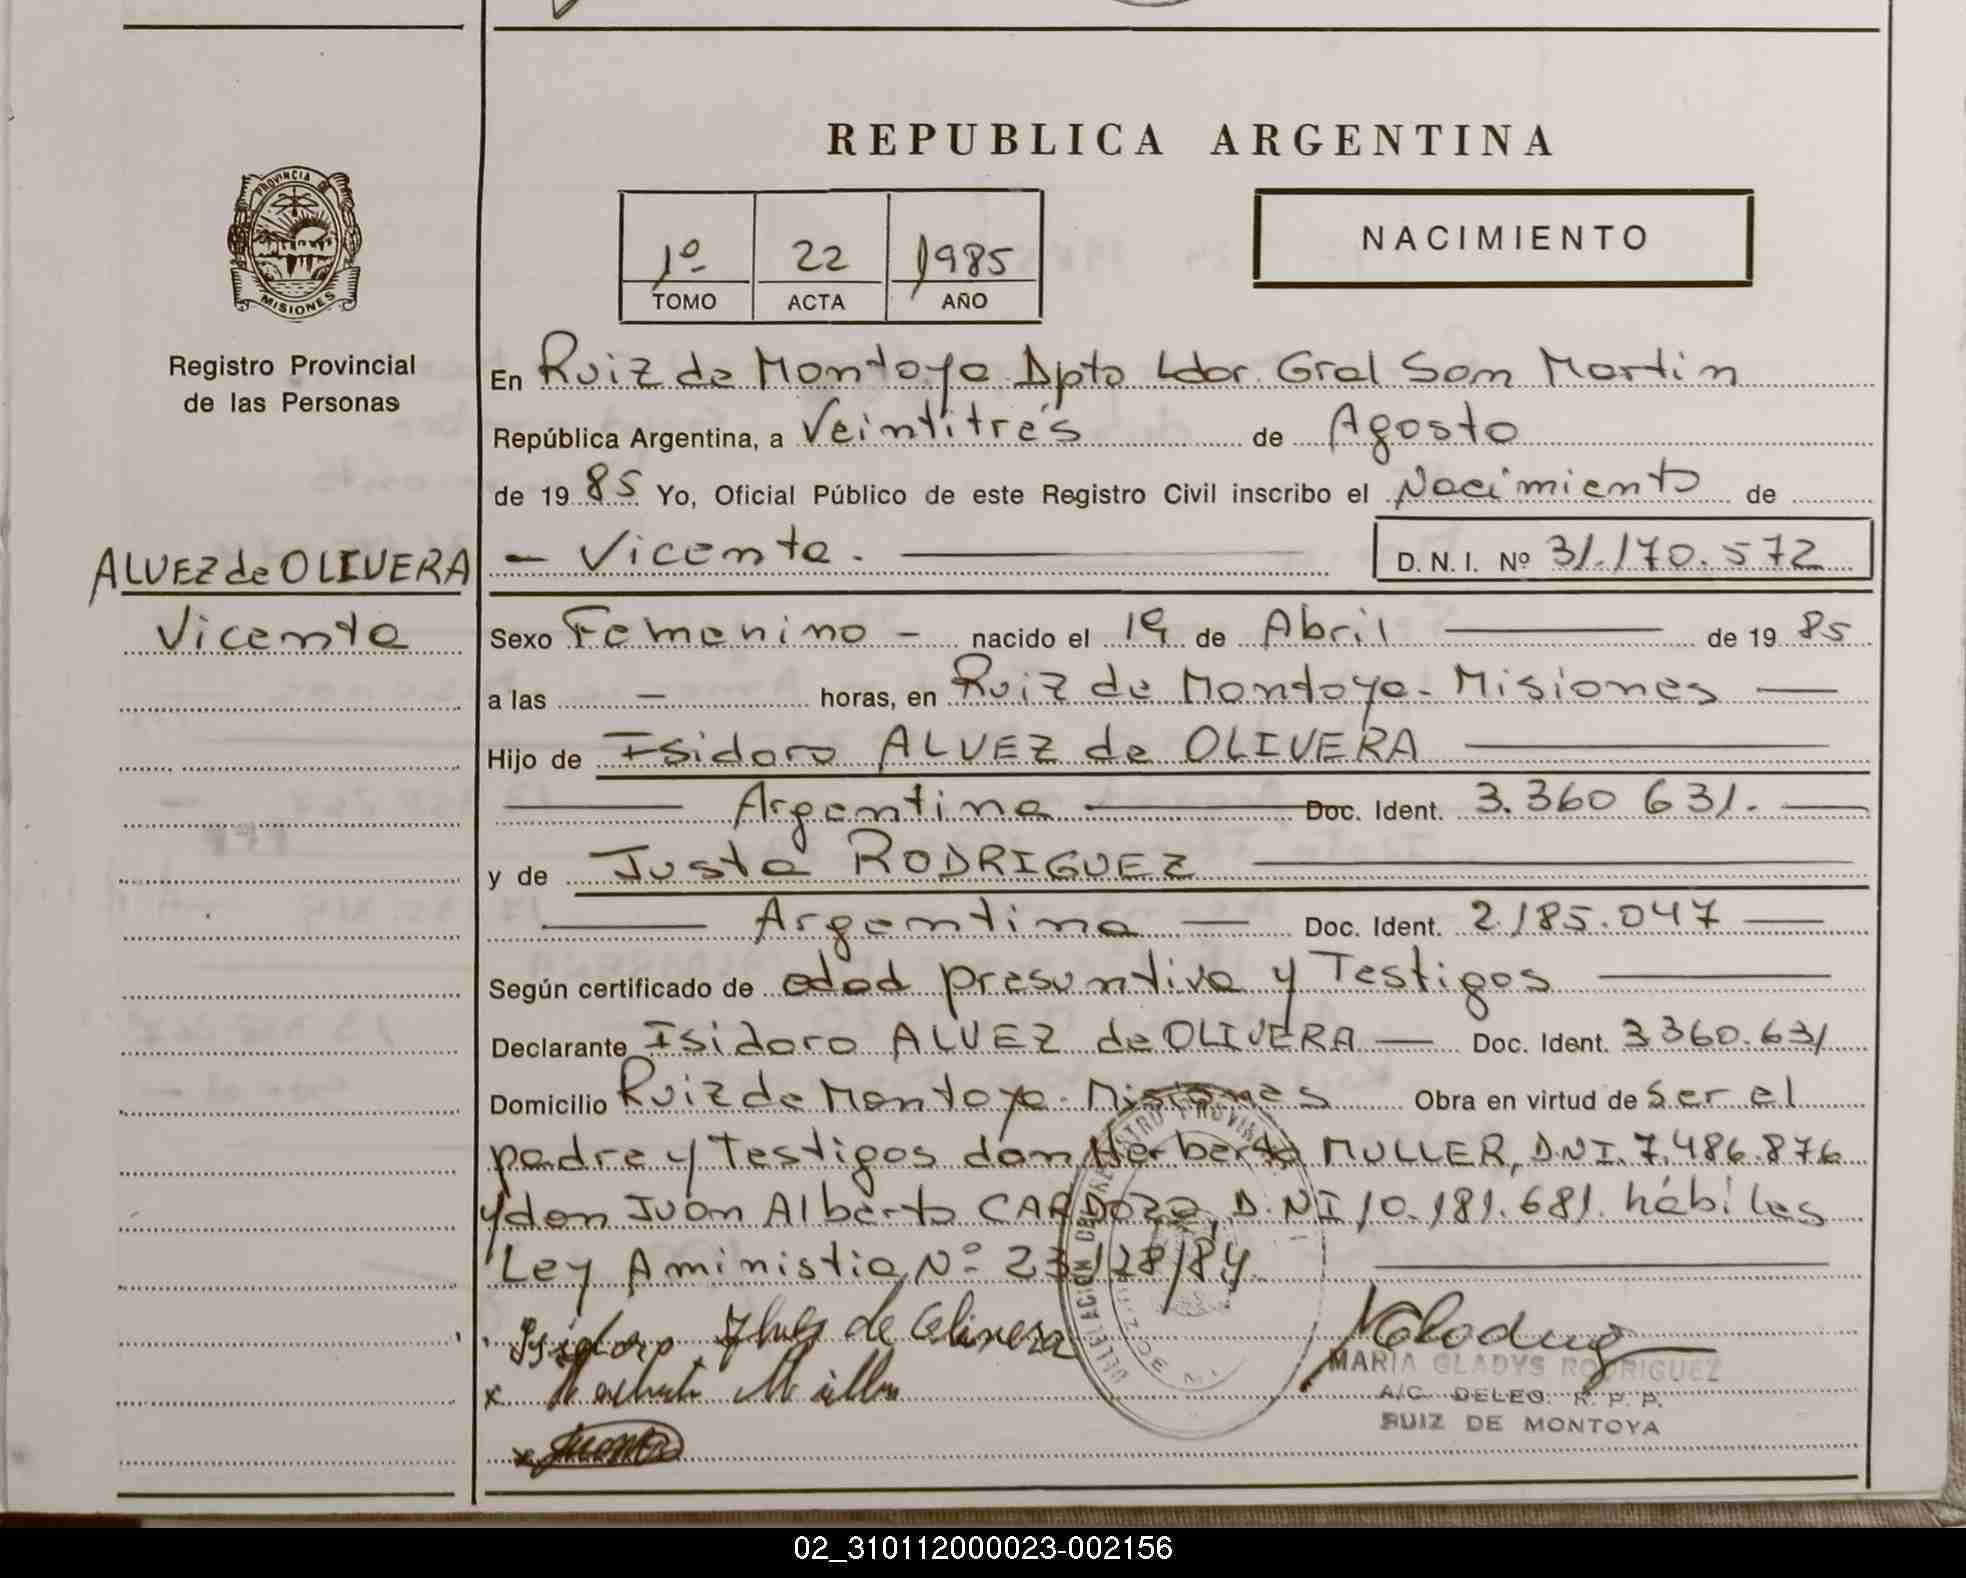 REPUBLICA ARGENTINA
PROVINCIA DE
MISIONES
Registro Provincial
de las Personas
1º 22 1985
TOMO ACTA AÑO
NACIMIENTO
En Ruiz de Montoya Dpto Ldor. Gral San Martin
República Argentina, a Veintitrés de Agosto
de 19 85 Yo, Oficial Público de este Registro Civil inscribo el Nacimiento de
ALVEZ de OLIVERA
Vicenta
- Vicenta. D. N. I. Nº 31.170.572
Sexo Femenino - nacido el 19 de Abril de 19 85
a las - horas, en Ruiz de Montoya - Misiones
Hijo de Isidoro ALVEZ de OLIVERA
Argentina Doc. Ident. 3.360 631.
y de Justa RODRIGUEZ
Argentina Doc. Ident. 2.185.047
Según certificado de edad presuntiva y Testigos
Declarante Isidoro ALVEZ de OLIVERA Doc. Ident. 3.360.631
Domicilio Ruiz de Montoya - Misiones Obra en virtud de ser el
padre y Testigos don Herberto MULLER, DNI. 7.486.876
y don Juan Alberto CARDOZO, D.NI 10.181.681. hábiles
Ley Aministia Nº 23128/84.
Isidoro Alves de Olivera
x Herberto Müller
x
MARIA GLADYS RODRIGUEZ
A/C. DELEG. R. P. P.
RUIZ DE MONTOYA
02_310112000023-002156